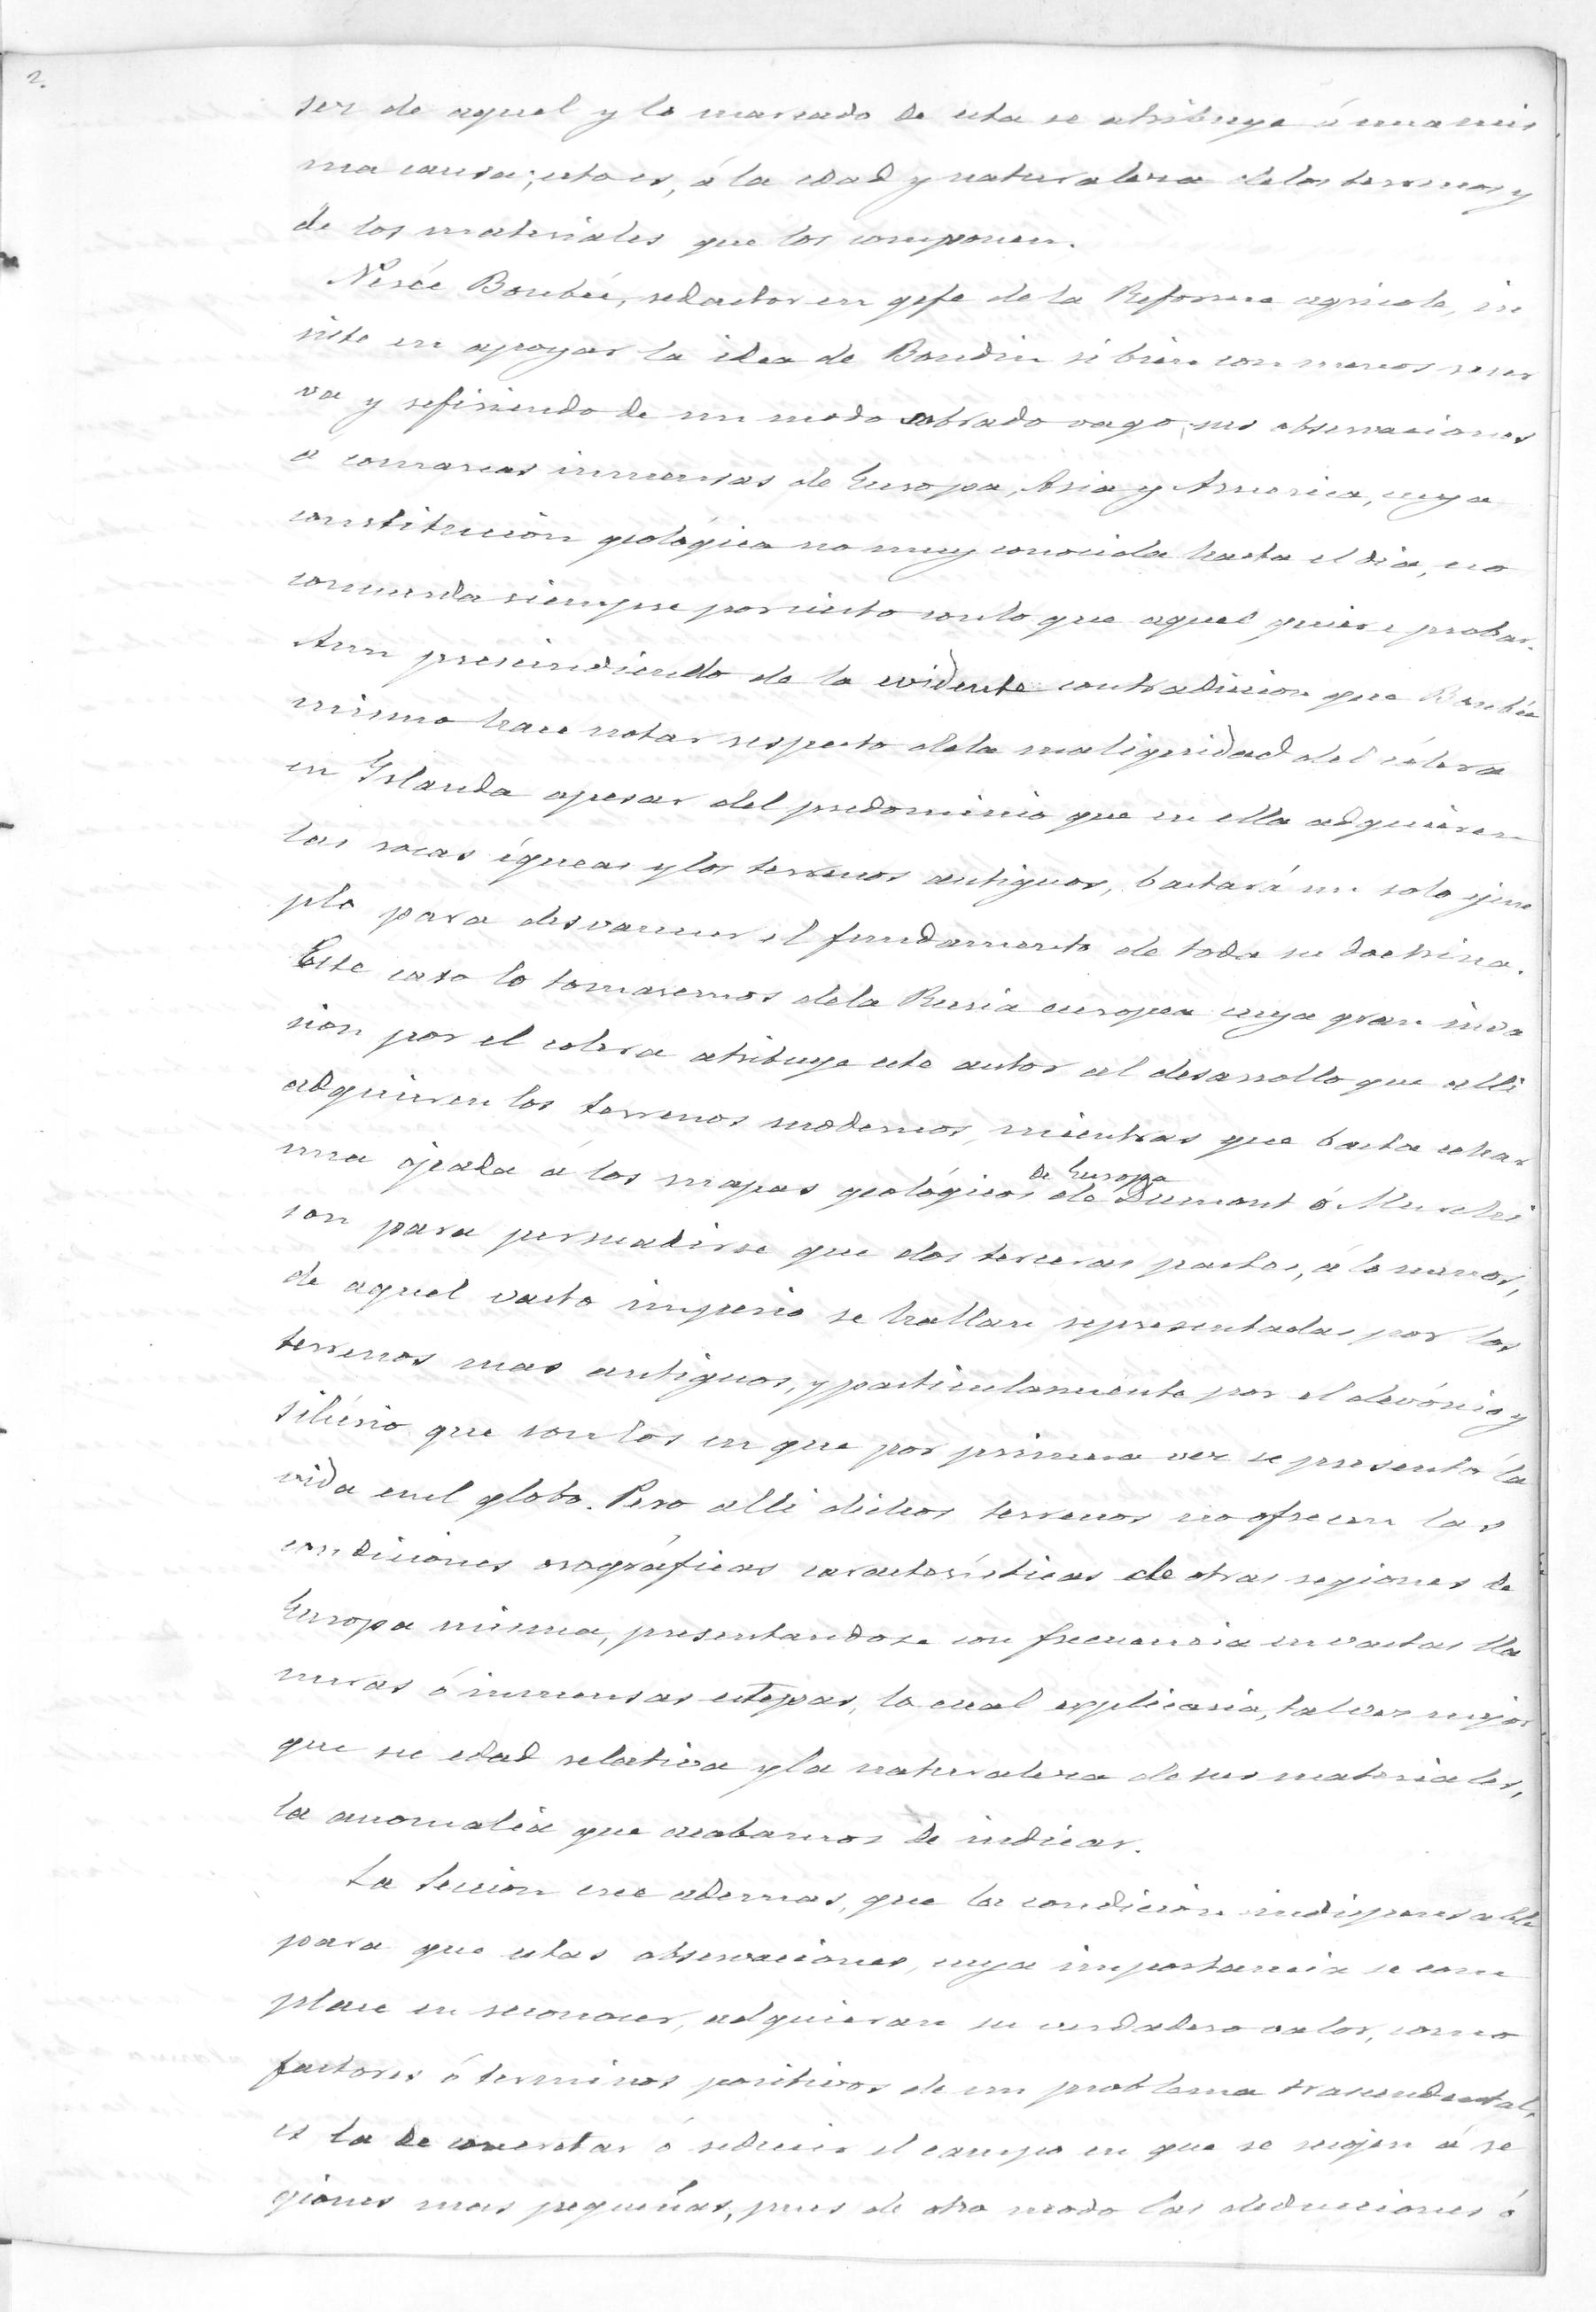 2.
ser de aquel y lo marcado de esta se atribuye á una mis
ma causa; esto es, á la edad y naturaleza de los terrenos y
de los materiales que los componen.
Nerée Boubée, redactor en gefe de la Reforme agricole, in
siste en apoyar la idea de Boudin si bien con menos reser
va y refiriendo de un modo sobrado vago, sus observaciones
a comarcas inmensas de Europa, Asia y America, cuya
constitucion geológica no muy conocida hasta el dia, no
concuerda siempre por cierto con lo que aquel quiere probar.
Aun prescindiendo de la evidente contradicion que Boubée
mismo hace notar respecto de la malignidad del cólera
en Yslanda apesar del predominio que en ella adquieren
las rocas ígneas y los terrenos antiguos, bastará un solo ejem
plo para desvanecer el fundamento de toda su doctrina.
Este caso lo tomaremos de la Rusia europea cuya gran inva
sion por el colera atribuye este autor al desarrollo que alli
adquieren los terrenos modernos, mientras que basta echar
una ojeada á los mapas geológicos de Europa de Dumont ó Murchi
son para persuadirse que dos terceras partes, á lo menos,
de aquel vasto imperio se hallan representadas por los
terrenos mas antiguos, y particularmente por el devónio y
silúrio que son los en que por primera vez se presentó la
vida en el globo. Pero alli dichos terrenos no ofrecen las
condiciones orográficas características de otras regiones de
Europa misma, presentandose con frecuencia en vastas lla
nuras ó inmensas estepas, lo cual explicaria, tal vez mejor
que su edad relativa y la naturaleza de sus materiales,
la anomalia que acabamos de indicar.
La Seccion cree ademas, que la condicion indispensable
para que estas observaciones, cuya importancia se com
place en reconocer, adquieran su verdadero valor, como
factores ó terminos positivos de un problema trascendental,
es la de concretar ó reducir el campo en que se recojen á re
giones mas pequeñas, pues de otro modo las deducciones ó